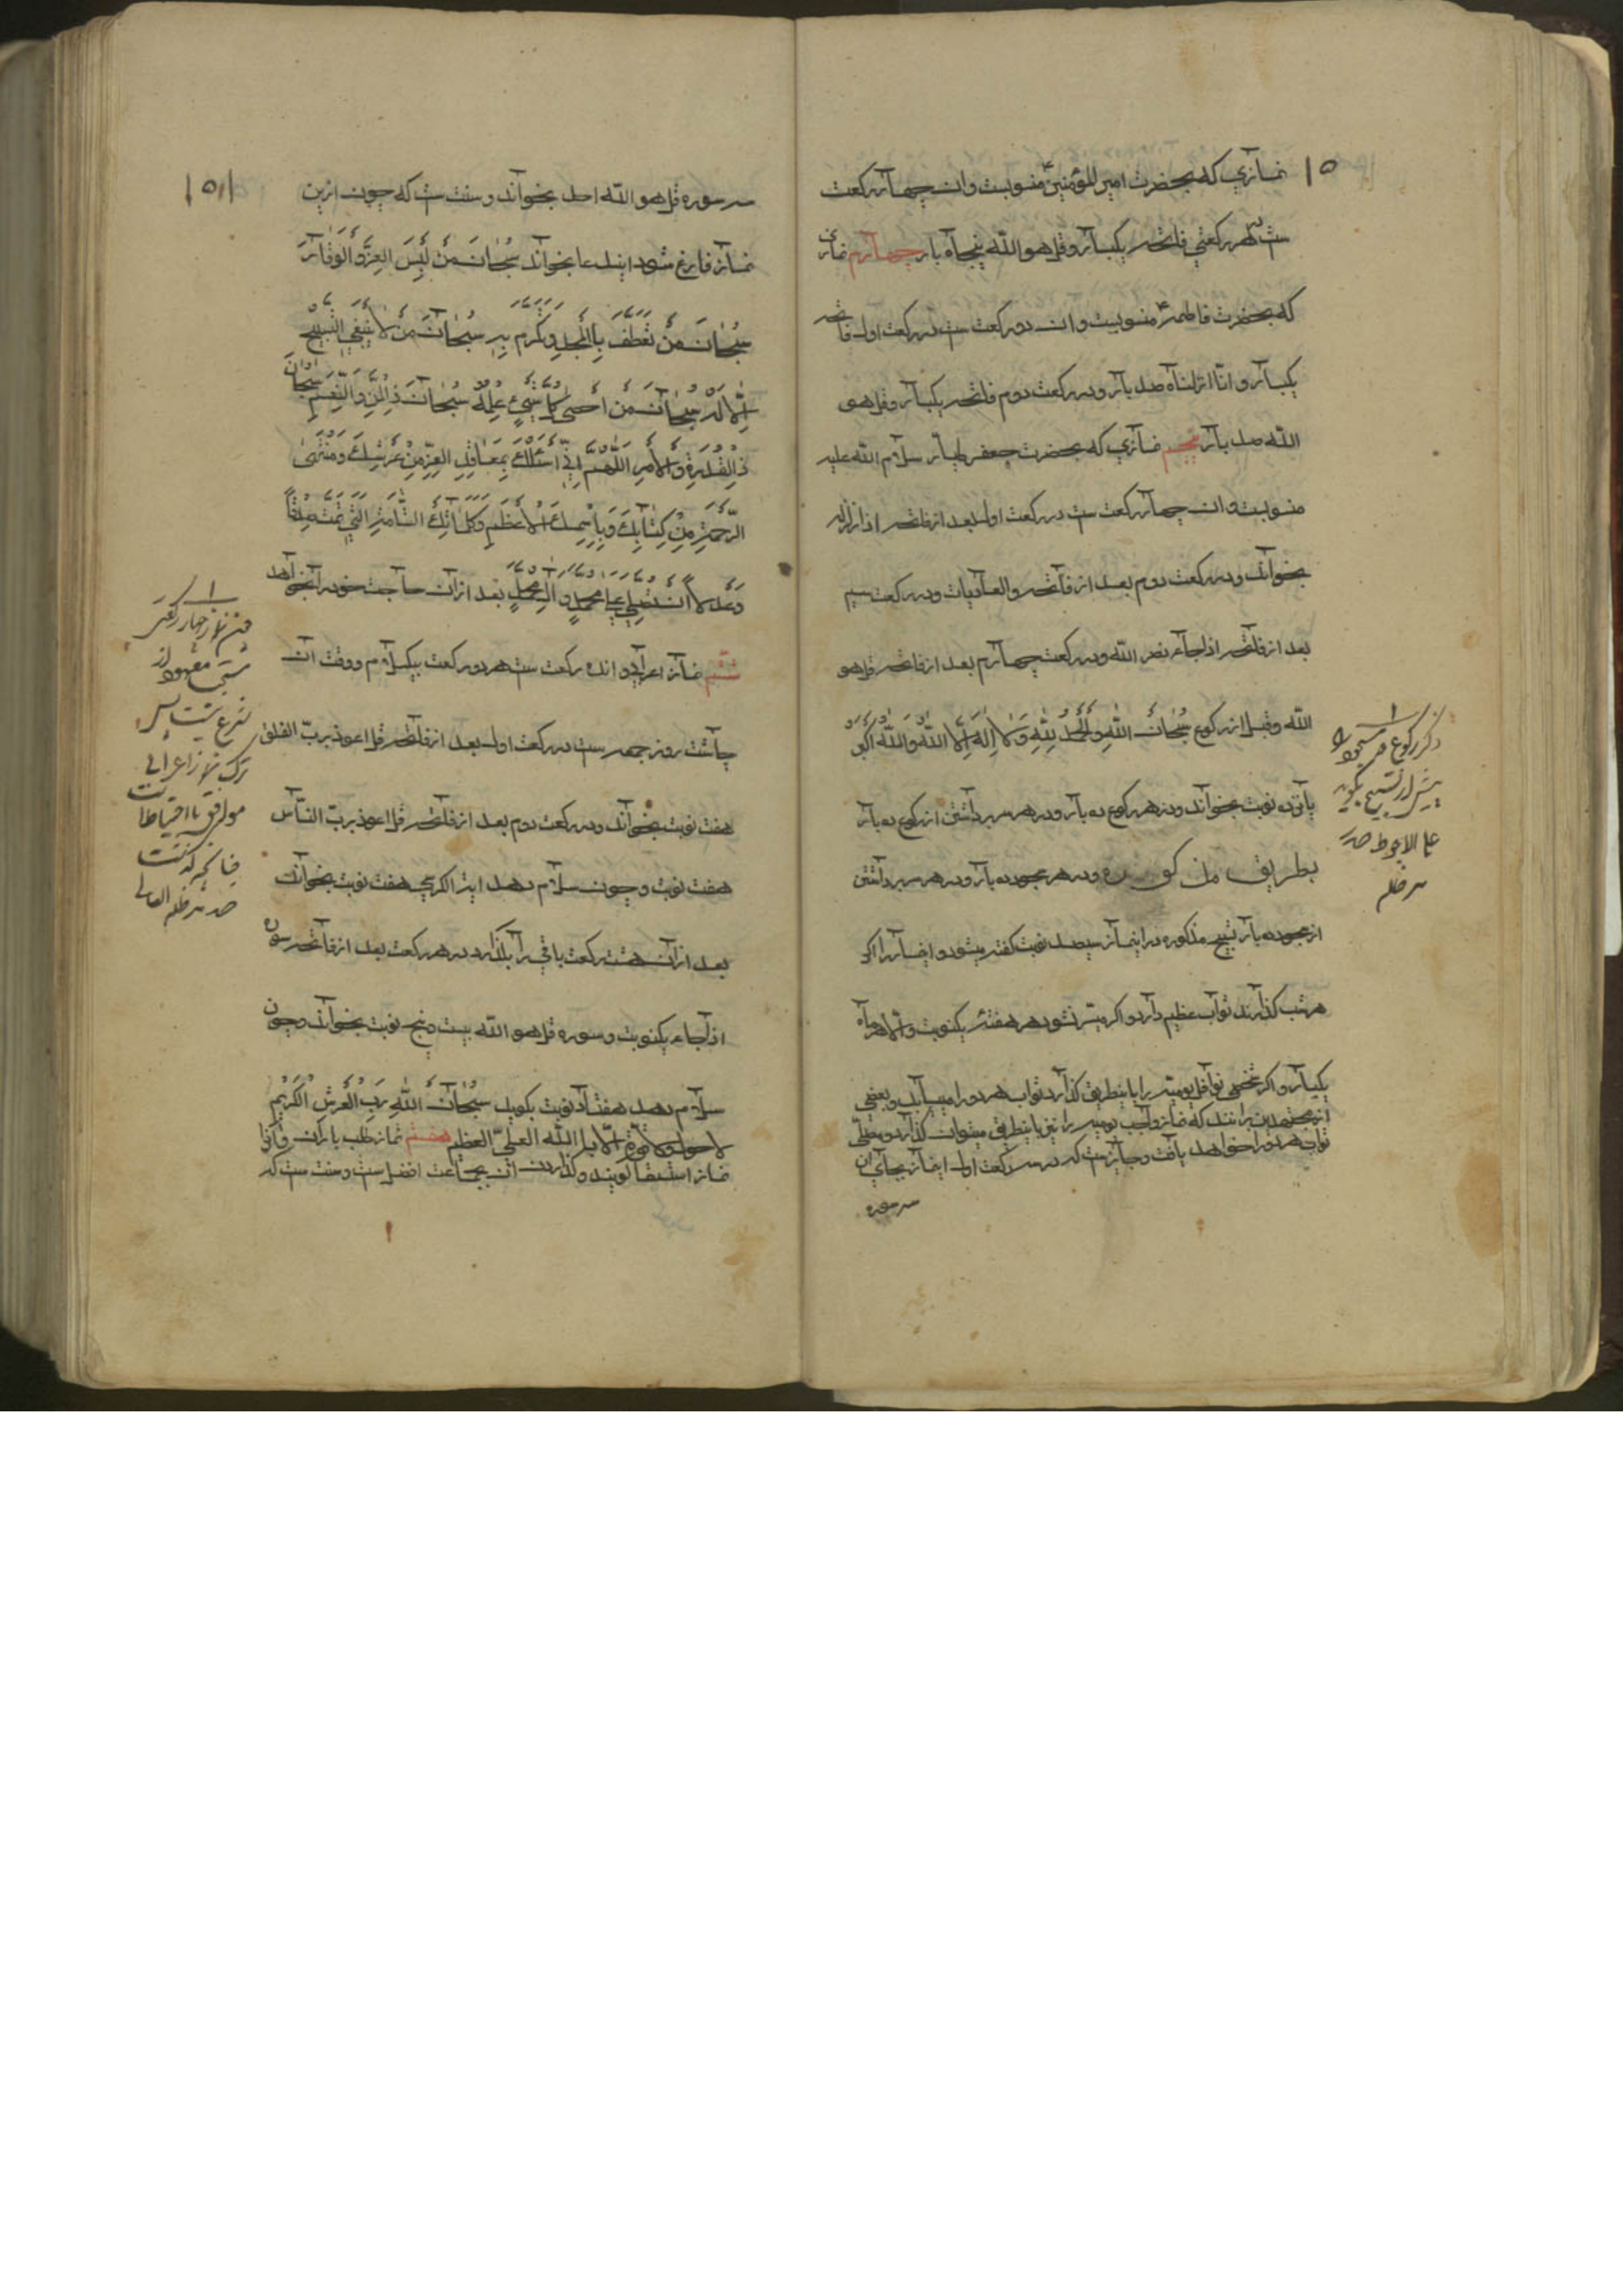 ۱۵
نمازی که بحضرت امیر المؤمنین ع منسوبست و ان چهار رکعت
ست در هر رکعتی فاتحه یکبار و قل هو الله پنجاه بار چهارم نمازی
که بحضرت فاطمه ع منسوبست و ان دو رکعت ست در رکعت اول فاتحه
یکبار و انا انزلناه صد بار و در رکعت دوم فاتحه یکبار و قل هو
الله صد بار پنجم نمازی که بحضرت جعفر طیار سلام الله علیه
منسوبست و ان چهار رکعت ست در رکعت اول بعد از فاتحه اذا زلزله
بخواند و در رکعت دوم بعد از فاتحه والعادیات و در رکعت سیم
بعد از فاتحه اذا جاء نصر الله و در رکعت چهارم بعد از فاتحه قل هو
الله و قبل از رکوع سُبْحٰانَ اللهِ وَالْحَمْدُ لِلّٰهِ وَلٰا اِلٰهَ اِلَّا اللهُ وَاللهُ اَکْبَرُ
پانزده نوبت بخواند و در هر رکوع ده بار و در هر سر برداشتن از رکوع ده بار
بطریق مذکور و در هر سجود ده بار و در هر سر برداشتن
از سجود ده بار تسبیح مذکوره در اینماز سیصد نوبت گفته میشود و اینماز را اگر
هر شب گذارند ثواب عظیم دارد و اگر میسر نشود هر هفته یکنوبت و الا هر ماه
یکبار و اگر شخصی نوافل یومیه را باینطریق گذارد ثواب هر دو را مییابد و بعضی
از مجتهدین برانند که نماز واجب یومیه را نیز باینطریق میتوان گذارد و مصلی
ثواب هر دو را خواهد یافت و جایزست که در سه رکعت اول اینماز بجای ان
سه سوره
ذکر رکوع و سجود را
پیش از تسبیح بگوید
علی الاحوط صدر
مد ظله
۱۵۱
سه سوره قل هو الله احد بخواند و سنت ست که چون ازین
نماز فارغ شود ایندعا بخواند سُبْحٰانَ مَنْ لَبِسَ الْعِزَّ وَالْوَقٰارَ
سُبْحٰانَ مَنْ تَعَطَّفَ بِالْمَجْدِ وَتَکَرَّمَ بِهِ سُبْحٰانَ مَنْ لٰا یَنْبَغِی التَّسْبِیحُ
اِلّٰا لَهُ سُبْحٰانَ مَنْ اَحْصٰی کُلَّ شَیْءٍ عِلْمُهُ سُبْحٰانَ ذِی الْمَنِّ وَالنِّعَمِ سُبْحٰانَ
ذِی الْقُدْرَةِ وَالْاَمْرِ اَللّٰهُمَّ اِنِّی اَسْئَلُکَ بِمَعٰاقِدِ الْعِزِّ مِنْ عَرْشِکَ وَمُنْتَهَی
الرَّحْمَةِ مِنْ کِتٰابِکَ وَبِاِسْمِکَ الْاَعْظَمِ وَکَلِمٰاتِکَ التّٰامَّةِ الَّتِی تَمَّتْ صِدْقًا
وَعَدْلًا اَنْ تُصَلِّیَ عَلیٰ مُحَمَّدٍ وَآلِ مُحَمَّدٍ بعد ازان حاجت خود را بخواهد
ششم نماز اعرابی و ان ده رکعت ست هر دو رکعت بیکسلام و وقت ان
چاشت روز جمعه ست در رکعت اول بعد از فاتحه قل اعوذ برب الفلق
هفت نوبت بخواند و در رکعت دوم بعد از فاتحه قل اعوذ برب الناس
هفت نوبت و چون سلام دهد ایة الکرسی هفت نوبت بخواند
بعد ازان هشت رکعت باقی را بگذارد در هر رکعت بعد از فاتحه سوره
اذا جاء یکنوبت و سوره قل هو الله بیست و پنج نوبت بخواند و چون
سلام دهد هفتاد نوبت بگوید سُبْحٰانَ اللهِ رَبِّ الْعَرْشِ الْکَرِیمِ
لا حول و لا قوة الا بالله العلی العظیم هفتم نماز طلب باران و آنرا
نماز استسقا گویند و گذاردن ان بجماعت افضل ست و سنت ست که
چون نماز چهار رکعتی
معهود از
شرع نیست پس
ترک نماز اعرابی
موافق با احتیاط است
چنانچه گذشت
صدر مد ظله العالی